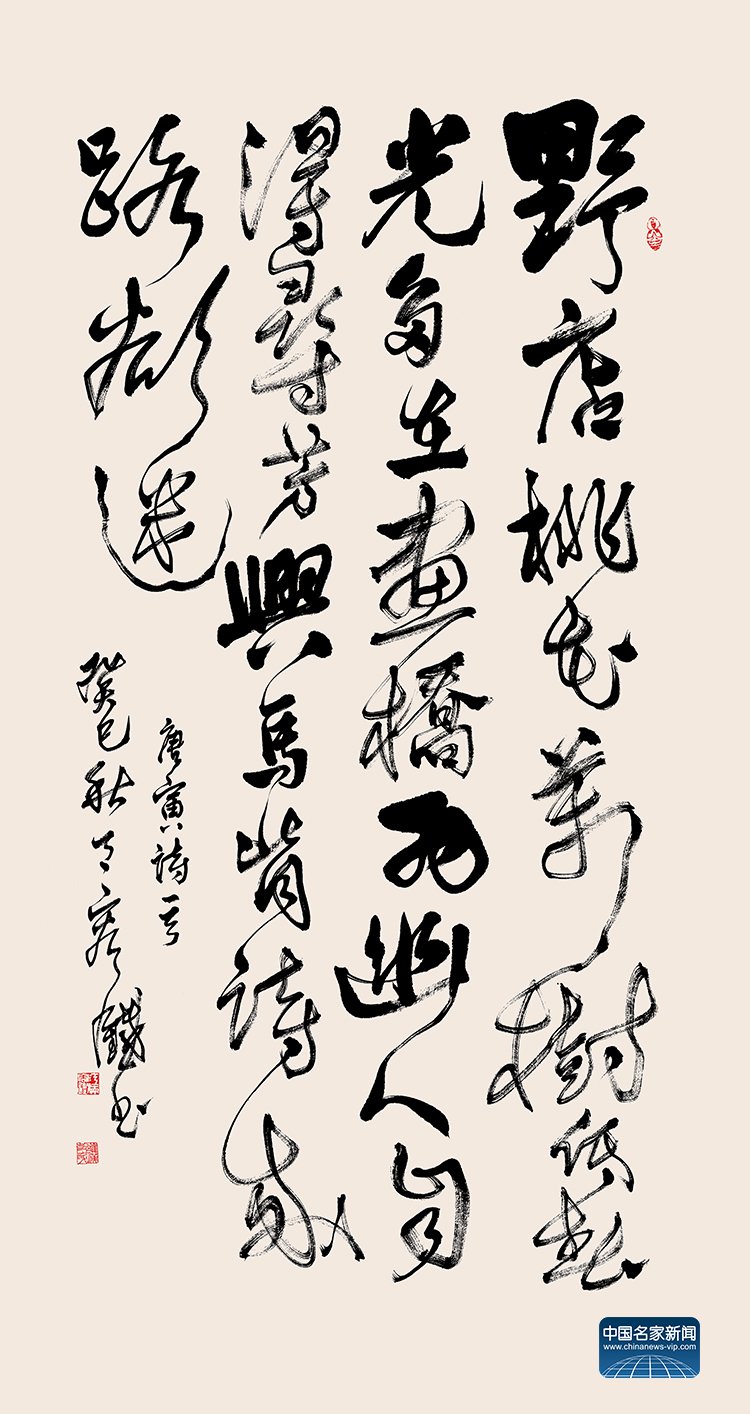 野店桃花萬樹低春
光多在畫橋西幽人自
得尋芳興馬背詩成
路欲迷
唐寅詩一首
癸巳秋 鐵书
中国名家新闻
www.chinanews-vip.com